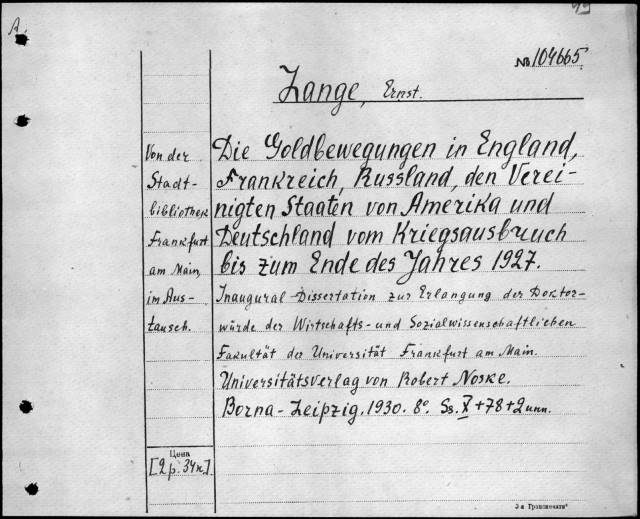 A.
№ 104665
Lange, Ernst.
Die Goldbewegungen in England,
Frankreich, Russland, den Verei-
nigten Staaten von Amerika und
Deutschland vom Kriegsausbruch
bis zum Ende des Jahres 1927.
Inaugural-Dissertation zur Erlangung der Doktor-
würde der Wirtschafts- und Sozialwissenschaftlichen
Fakultät der Universität Frankfurt am Main.
Universitätsverlag von Robert Noske.
Borna-Leipzig. 1930. 8° Ss. X + 78 + 2 unn.
Von der
Stadt-
bibliothek
Frankfurt
am Main,
im Aus-
tausch.
Цена
[2 р. 34 к.]
3-я